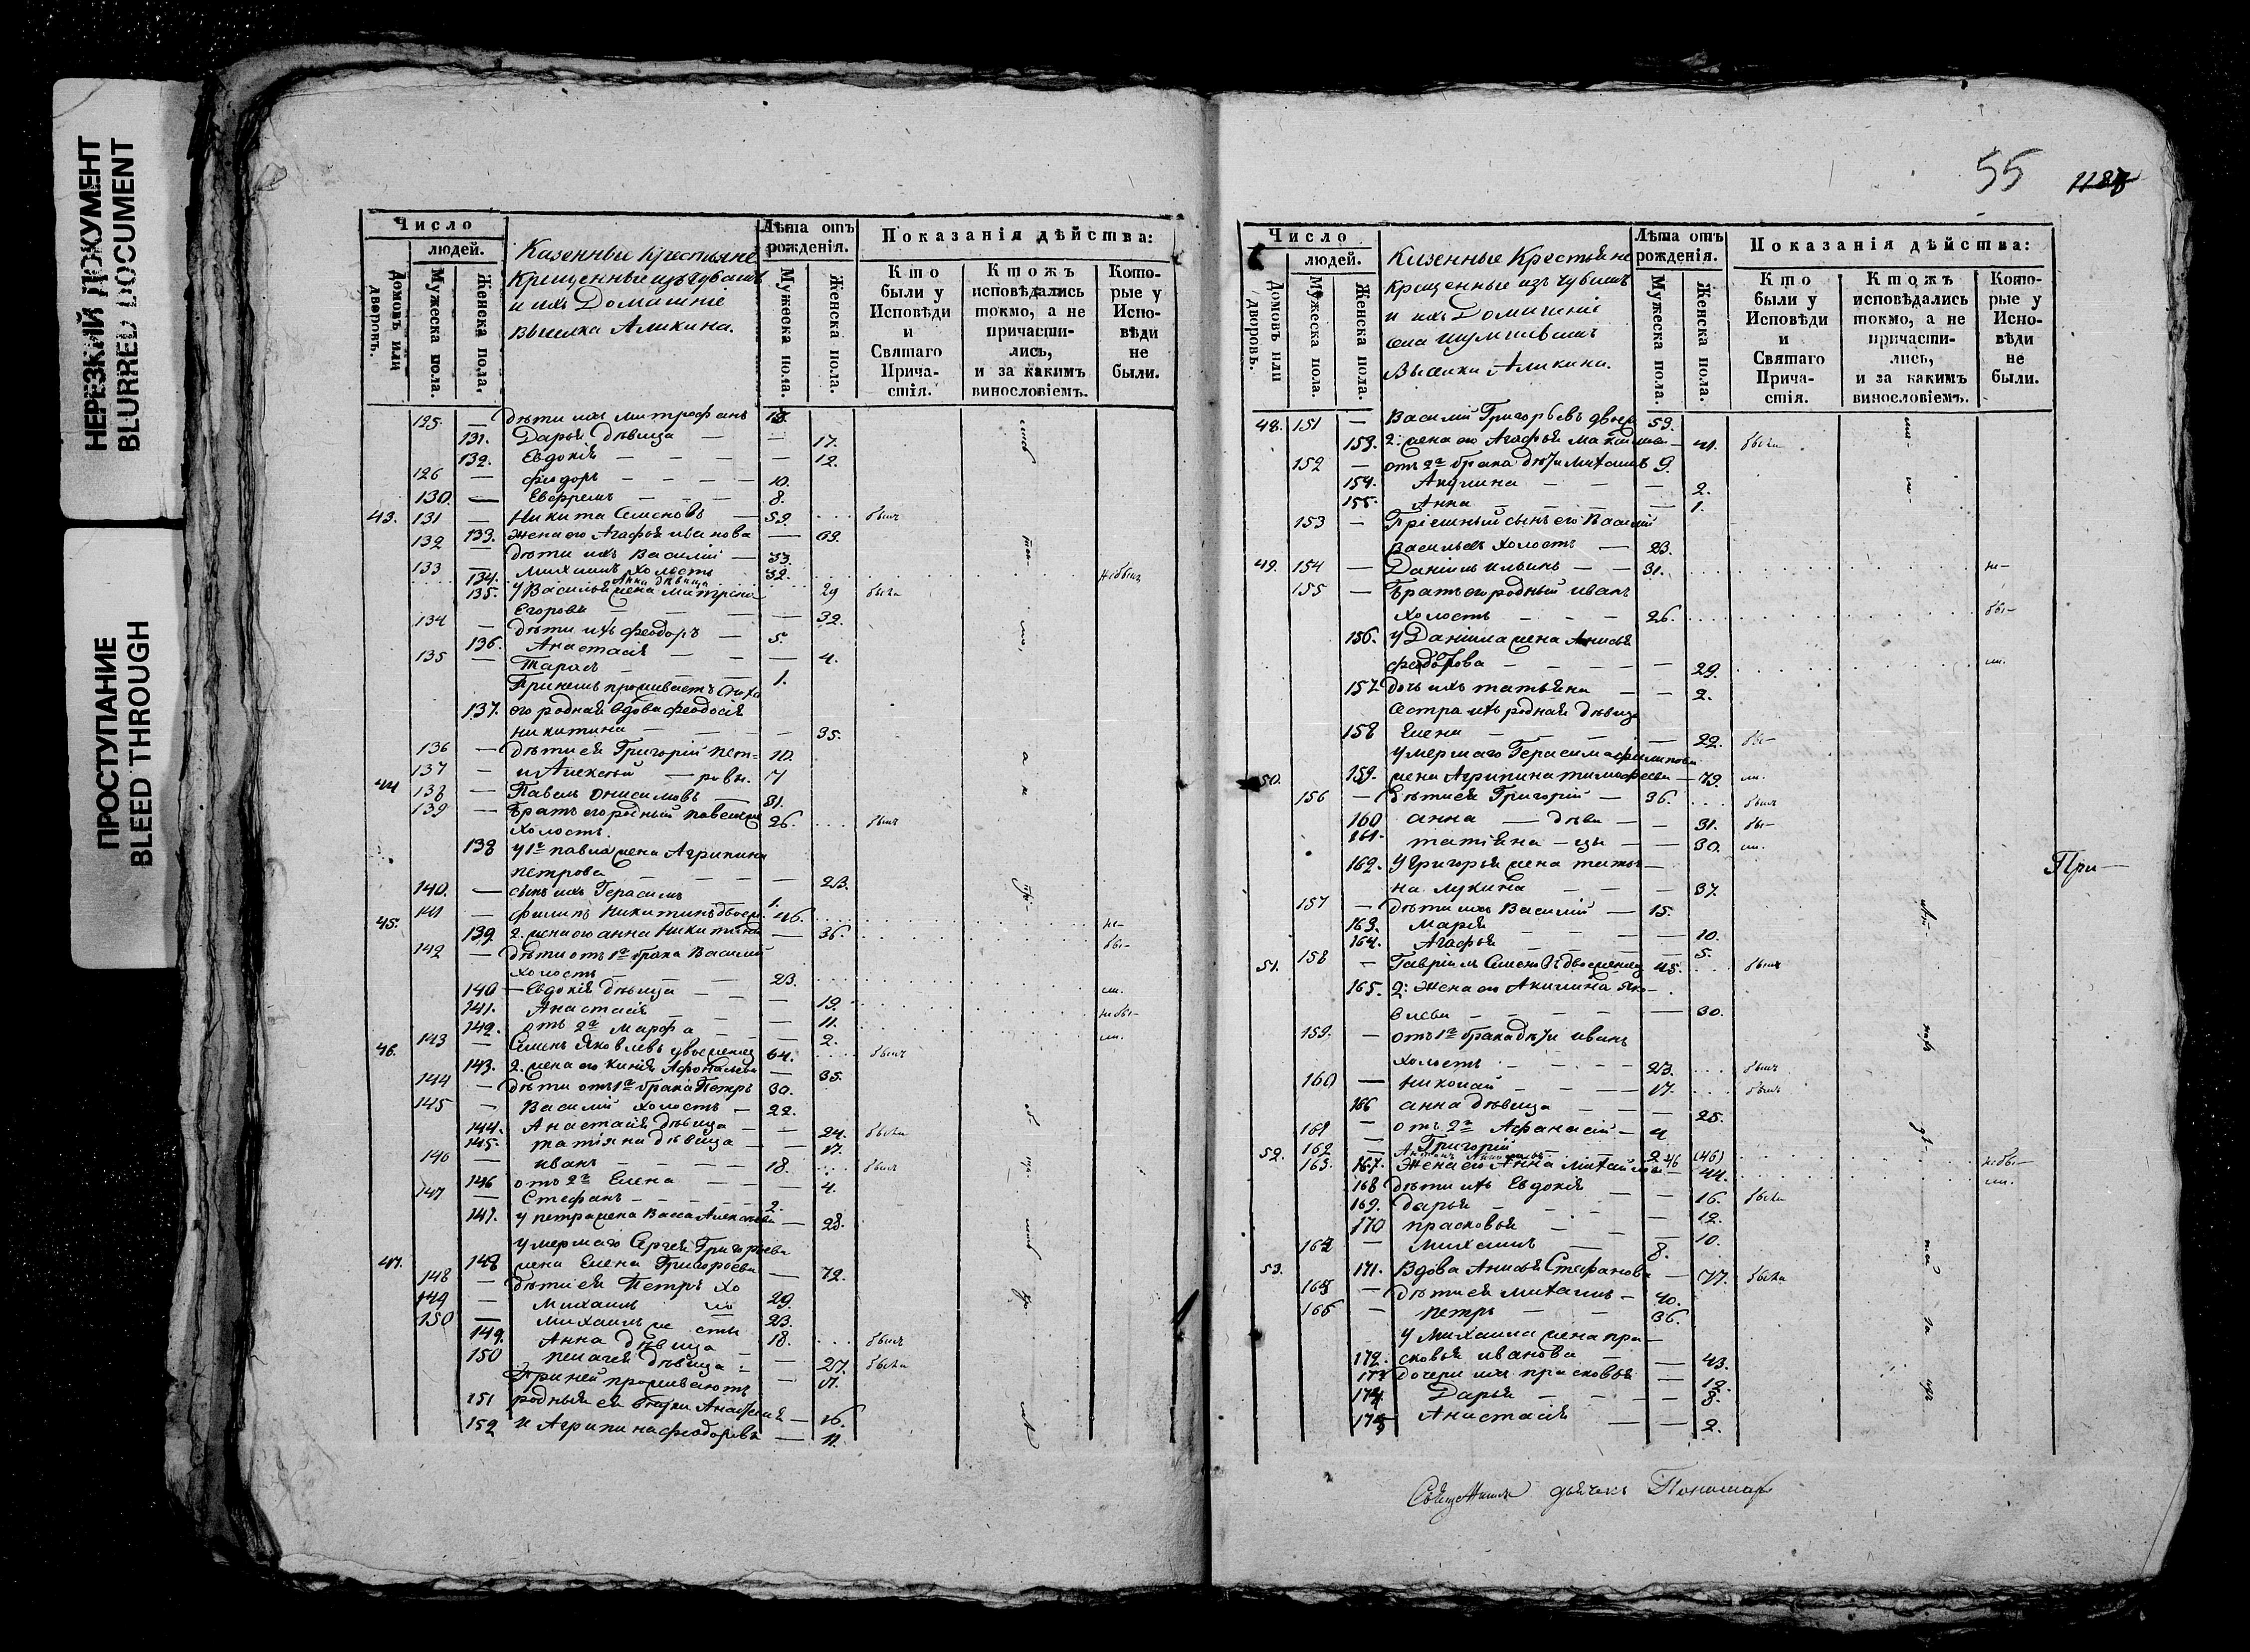 НЕРЕЗКИЙ ДОКУМЕНТ
BLURRED DOCUMENT
ПРОСТУПАНИЕ
BLEED THROUGH
Число
людей.
Домовъ или дворовъ.
Мужеска пола.
Женска пола.
Казенные Крестьяне
крещенные изъ чувашъ
и ихъ Домашніе
выселка Аликина.
Лѣта отъ рожденія.
Мужеска пола.
Женска пола.
Показанія дѣйства:
Кто были у Исповѣди и Святаго Причастія.
Ктожъ исповѣдались токмо, а не причастились, и за какимъ винословіемъ.
Которые у Исповѣди не были.
125. — дѣти ихъ Митрофанъ
131. Дарья дѣвица — — 17.
132. Евдокія — — — — 12.
126 — Ѳедоръ — — — — 10.
130. — Евфремъ — — — 8.
43. 131 — Никита Семеновъ — 59. былъ
133. Жена его Агафья Иванова — 63.
132 — дѣти ихъ Василій — 33.
133 — Михаилъ холостъ 32. не былъ
134. Анна дѣвица 29 была
135. У Василья жена Матрена
Егорова — 32.
134 — дѣти ихъ Ѳеодоръ — 5.
136. Анастасія — — — 4.
135 — Тарасъ — 1.
При немъ проживаетъ сноха
137. его родная вдова Ѳеодосія
Никитина — — — 35.
136 — дѣти ея Григорій Пет- 10.
137 — и Алексѣй — ровы. 7
44 138 — Павелъ Онисимовъ — 31.
139 — Братъ его родный 26. былъ
холостъ.
138 у 1го Павла жена Агрипина
Петрова — — — — 23.
140. — сынъ ихъ Герасимъ 1.
45. 141 — Филипъ Никитинъ двоеж. 46. не-
139. 2. жена его Анна Никитина — 36. бы-
142 — дѣти отъ 1го брака Василій
холостъ — — 23. ли.
140 — Евдокія дѣвица — — — 19. не бы-
141. Анастасія — — — 11. ли.
142. отъ 2го Марфа — — — 2.
46. 143 — Семенъ Яковлевъ двоеженецъ 64. былъ
143. 2. жена его 35.
144 — дѣти отъ 1го брака Петръ 30.
145 — Василій холостъ — 22.
144. Анастасія дѣвица — — 24. была
145. Татіяна дѣвица — — 17.
146 — Иванъ — — — — 18. былъ
146 отъ 2го Елена — — — 4.
147 — Стефанъ — — — — 2.
147. у Петра жена Васса Алексѣева — 28.
умершаго Сергея Григорьева
47. 148 жена Елена Григорьева — 72.
148 — дѣти ея Петръ хо 29.
149 — Михаилъ ло 23.
150 — Михаилъ же сты 18. былъ
149. Анна дѣвица — — 27. была
150 Пелагея дѣвица — — 17.
При ней проживаютъ
151 родныя ея внуки — 16.
152 и Агрипина Ѳеодорова — 11.
55
Число
людей.
Домовъ или дворовъ.
Мужеска пола.
Женска пола.
Казенные Крестьяне
крещенные изъ чувашъ
и ихъ Домашніе
села Шумшевашъ
Выселки Аликина.
Лѣта отъ рожденія.
Мужеска пола.
Женска пола.
Показанія дѣйства:
Кто были у Исповѣди и Святаго Причастія.
Ктожъ исповѣдались токмо, а не причастились, и за какимъ винословіемъ.
Которые у Исповѣди не были.
48. 151 — Василій Григорьевъ двоеж. 59.
153. 2: жена его Агафья — 41. была
152 — отъ 2го брака дѣти Михаилъ 9.
154. Акулина — — — 2.
155. Анна — — — 1.
153 — Пріемный сынъ его Василій
Васильевъ холостъ — 23.
49. 154 — Даніилъ Ильинъ — — 31. не-
155 — Братъ его родный Иванъ
холостъ — — — 26. бы-
156. У Даніила жена Анисья
Ѳеодорова — — — — 29. ли.
157 дочь ихъ Татьяна — — 2.
Сестра ихъ родная дѣвица
158 Елена — — — — 22. бы-
умершаго Герасима Филипова
50. 159. жена Агрипина Тимофеева — 79. ли.
156 — дѣти ея Григорій — 36. былъ
160 Анна — дѣви — — 31. бы-
161. Татіяна — цы — — 30. ли.
162. У Григорья жена Татья —
на Лукина — — — 37.
157 — дѣти ихъ Василій — 15.
163. Марья — — — 10.
164. Агафья — — — 5.
51. 158 — Гавріилъ Семеновъ двоеженецъ 45. былъ
165. 2: Жена его Акилина Яко —
влева — — — — 30.
159. — отъ 1го брака дѣти Иванъ
холостъ — — — 23. былъ
160 — Николай — — — 17. былъ
166 Анна дѣвица — — — 25.
161 — отъ 2го Афанасій — 4
162 — Григорій — 2
52. 163. — 46 (46) не бы-
167. Жена его Анна Михайлова — 44. ли.
168 дѣти ихъ Евдокія — — 16. была
169. Дарья — — — 12.
170 Прасковья — — — 10.
164 — Михаилъ — 8.
53. 171. Вдова Анисья Стефанова — 77. была
165 — дѣти ея Михаилъ — 40.
166 — Петръ — — 36.
у Михаила жена Пра —
172. сковья Иванова — — 43.
173 дочери ихъ Прасковья — 12.
174 Дарья — — — 8.
175 Анастасія — — 2.
При—
Священникъ дьячекъ Пономарь